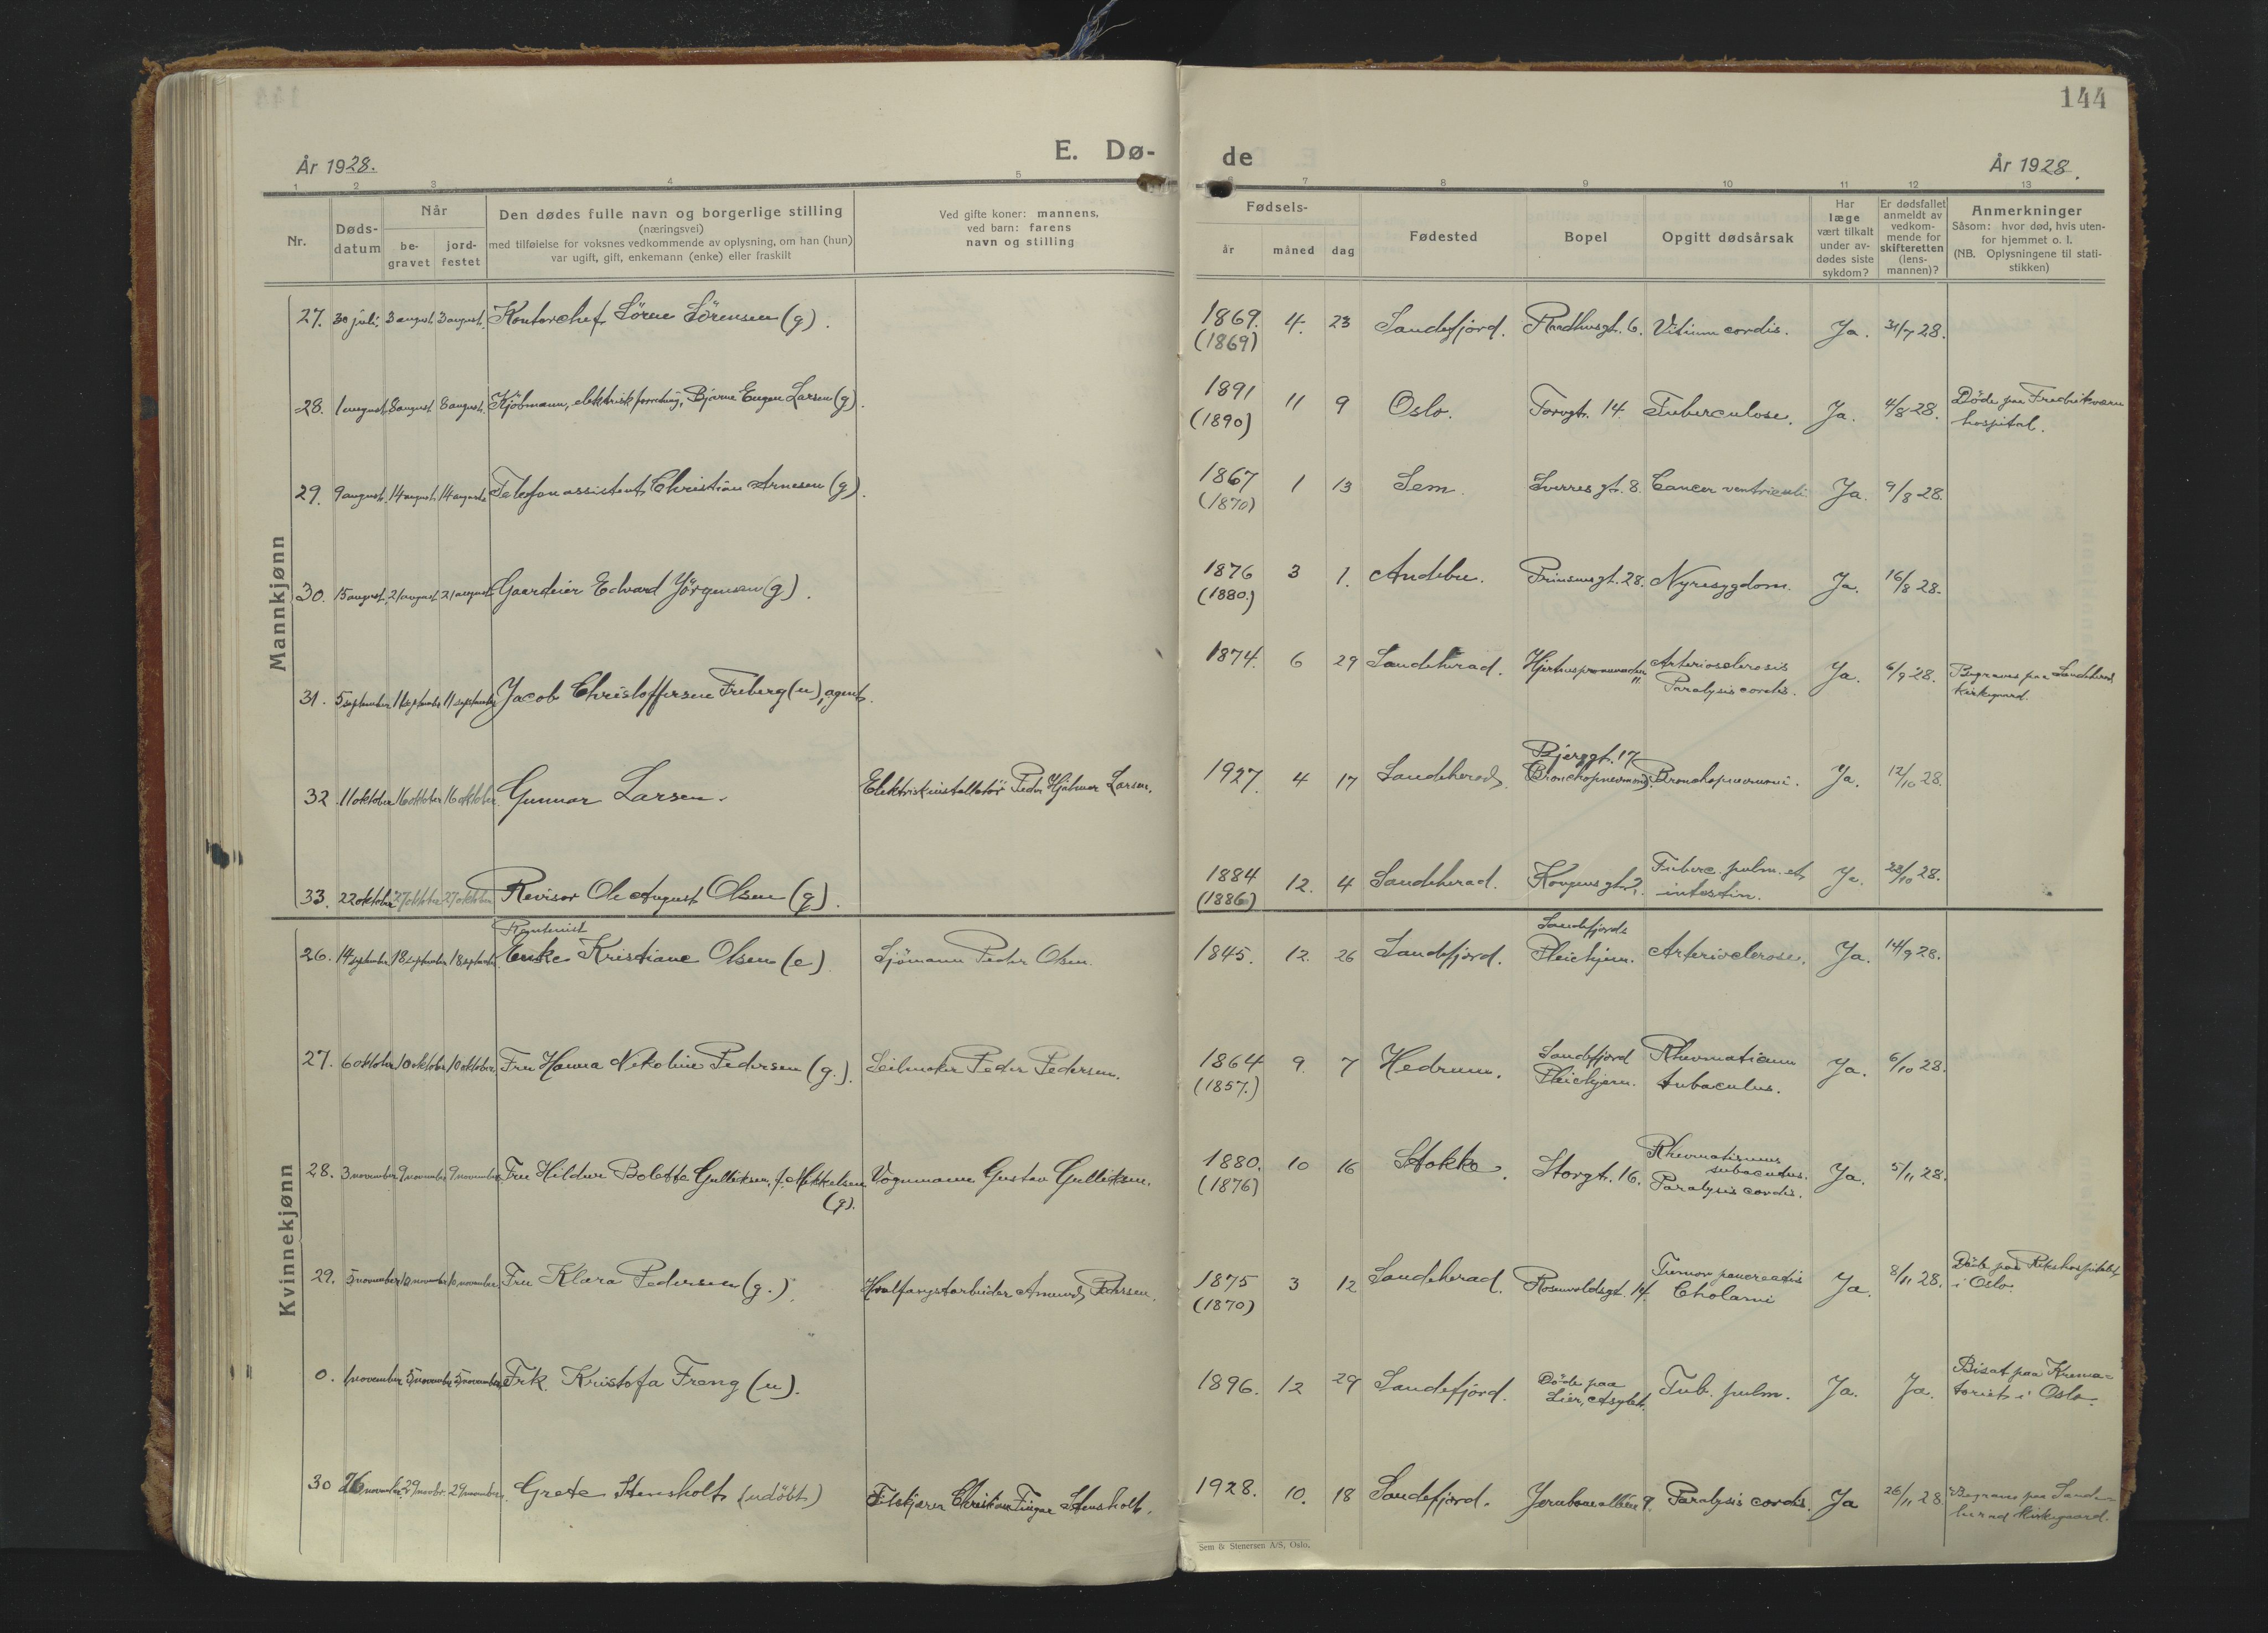 144
År 1928.
E. Dø-
de
År 1928.
1 2 3 4 5 6 7 8 9 10 11 12 13
Nr.
Døds-
datum
Når
be-
gravet
jord-
festet
Den dødes fulle navn og borgerlige stilling
(næringsvei)
med tilføielse for voksnes vedkommende av oplysning, om han (hun)
var ugift, gift, enkemann (enke) eller fraskilt
Ved gifte koner: mannens,
ved barn: farens
navn og stilling
Fødsels-
år
måned
dag
Fødested
Bopel
Opgitt dødsårsak
Har
læge
vært tilkalt
under av-
dødes siste
sykdom?
Er dødsfallet
anmeldt av
vedkom-
mende for
skifteretten
(lens-
mannen)?
Anmerkninger
Såsom: hvor død, hvis uten-
for hjemmet o. l.
(NB. Oplysningene til stati-
stikken)
Mannkjønn
27. 30 juli. 3 august. 3 august. Kontorchef Sörne Sörensen (g). 1869. 4. 23 Sandefjord. Raadhusgt. 6. Vitium cordis. Ja. 31/7 28.
(1869)
28. 1 august. 8 august. 8 august. Kjöbmann, elektrisk forretning, Bjarne Eugen Larsen (g). 1891 11 9 Oslo. Torvgt. 14. Tuberculose. Ja. 4/8 28. Döde paa Fredriksværn
(1890) hospital.
29. 9 august. 14 august. 14 august. Telefonassistent Christian Arnesen (g). 1867 1 13 Sem. Sverres gt. 8. Cancer ventriculi Ja. 9/8 28.
(1870)
30. 15 august. 21 august. 21 august. Gaardeier Edvard Jörgensen (g). 1876 3 1. Andebu. Prinsensgt. 28. Nyresygdom. Ja. 16/8 28.
(1880.)
31. 5 september 11 september 11 september Jacob Christoffersen Freberg (u), agent. 1874. 6 29 Sandeherad. Hjerthuspromenaden 11. Arteriosclerosis Ja. 6/9 28. Begraves paa Sandeherad
Paralysis cordis. Kirkegaard.
Bjerggt. 17
32. 11 oktober 16 oktober 16 oktober. Gunnar Larsen. Elektriskinstallatör Peder Hjalmar Larsen. 1927. 4 17 Sandeherad. (Bronchopneumoni). Bronchopneumoni. Ja. 12/10 28.
33. 22 oktober 27 oktober 27 oktober. Revisor Ole August Olsen (g). 1884 12. 4 Sandeherad. Kongens gt. 2. Tuberc. pulm. et Ja. 23/10 28.
(1886) intestin.
Kvinnekjønn
Rentenist Sandefjords
26. 14 september 18 september 18 september. Enke Kristiane Olsen (e). Sjömann Peder Olsen. 1845. 12. 26 Sandefjord. Pleiehjem. Arteriosclerose. Ja. 14/9 28.
27. 6 oktober 10 oktober 10 oktober. Fru Hanna Nikoline Pedersen (g.). Seilmaker Peder Pedersen. 1864 9. 7 Hedrum. Sandefjord Rheumatismus Ja. 6/10 28.
(1857.) Pleiehjem. subacutus.
28. 3 november 9 november 9 november Fru Hildur Bolette Gulliksen, f. Mikkelsen Vognmann Gustav Gulliksen. 1880. 10 16 Stokke. Storgt. 16. Rheumatismus subacutus. Ja. 5/11 28.
(g). (1876) Paralysis cordis.
29. 5 november 10 november 10 november Fru Klara Pedersen (g.). Hvalfangstarbeider Amund Pedersen. 1875 3 12 Sandeherad. Rosenvoldsgt. 14. Tumor pancreatis Ja. 8/11 28. Döde paa Rikshospitalet
(1870) Cholami i Oslo.
0. 1 november 5 november 5 november Frk. Kristofa Freng (u). 1896. 12 29 Sandefjord. Döde paa Tub. pulm. Ja. Ja. Bisat paa Krema-
Lier, Asylet. toriet i Oslo.
30 26 november. 29 novbr. 29 november. Grete Stensholt (udöbt) Filskjærer Christian Fingar Stensholt. 1928. 10. 18 Sandefjord. Jernbanealleen 9. Paralysis cordis. Ja 26/11 28. Begraves paa Sande-
herad Kirkegaard.
Sem & Stenersen A/S, Oslo.